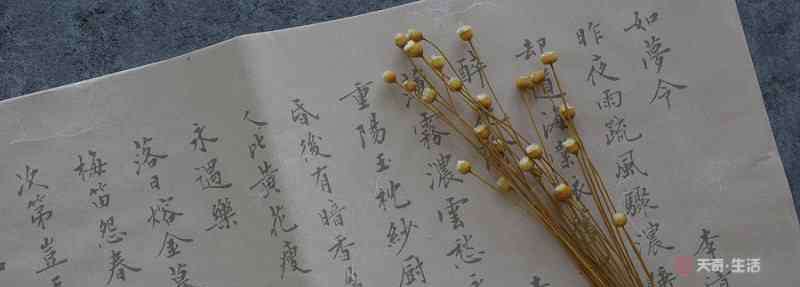 如夢令 李
昨夜雨疏風驟濃睡
却道海棠依
醉
薄霧濃雲愁永
重陽玉枕紗厨
昏後有暗香盈
人比黄花瘦
永遇樂
落日熔金暮
梅笛怨春
次第豈
天奇·生活